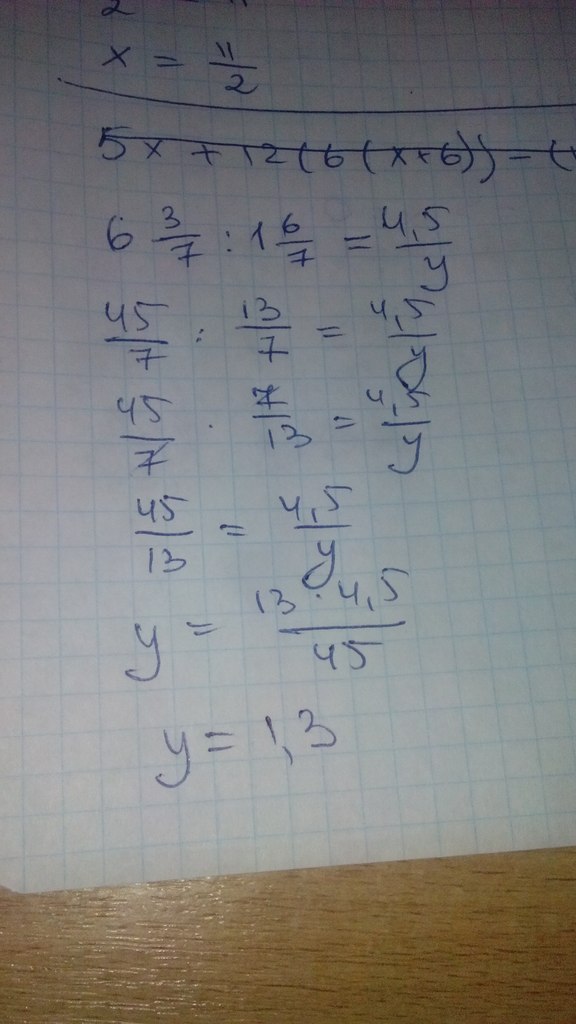 x = 11/2
5x + 12(6(x+6)) - (
6 3/7 : 1 6/7 = 4,5/y
45/7 : 13/7 = 4,5/y
45/7 · 7/13 = 4,5/y
45/13 = 4,5/y
y = 13 · 4,5/45
y = 1,3